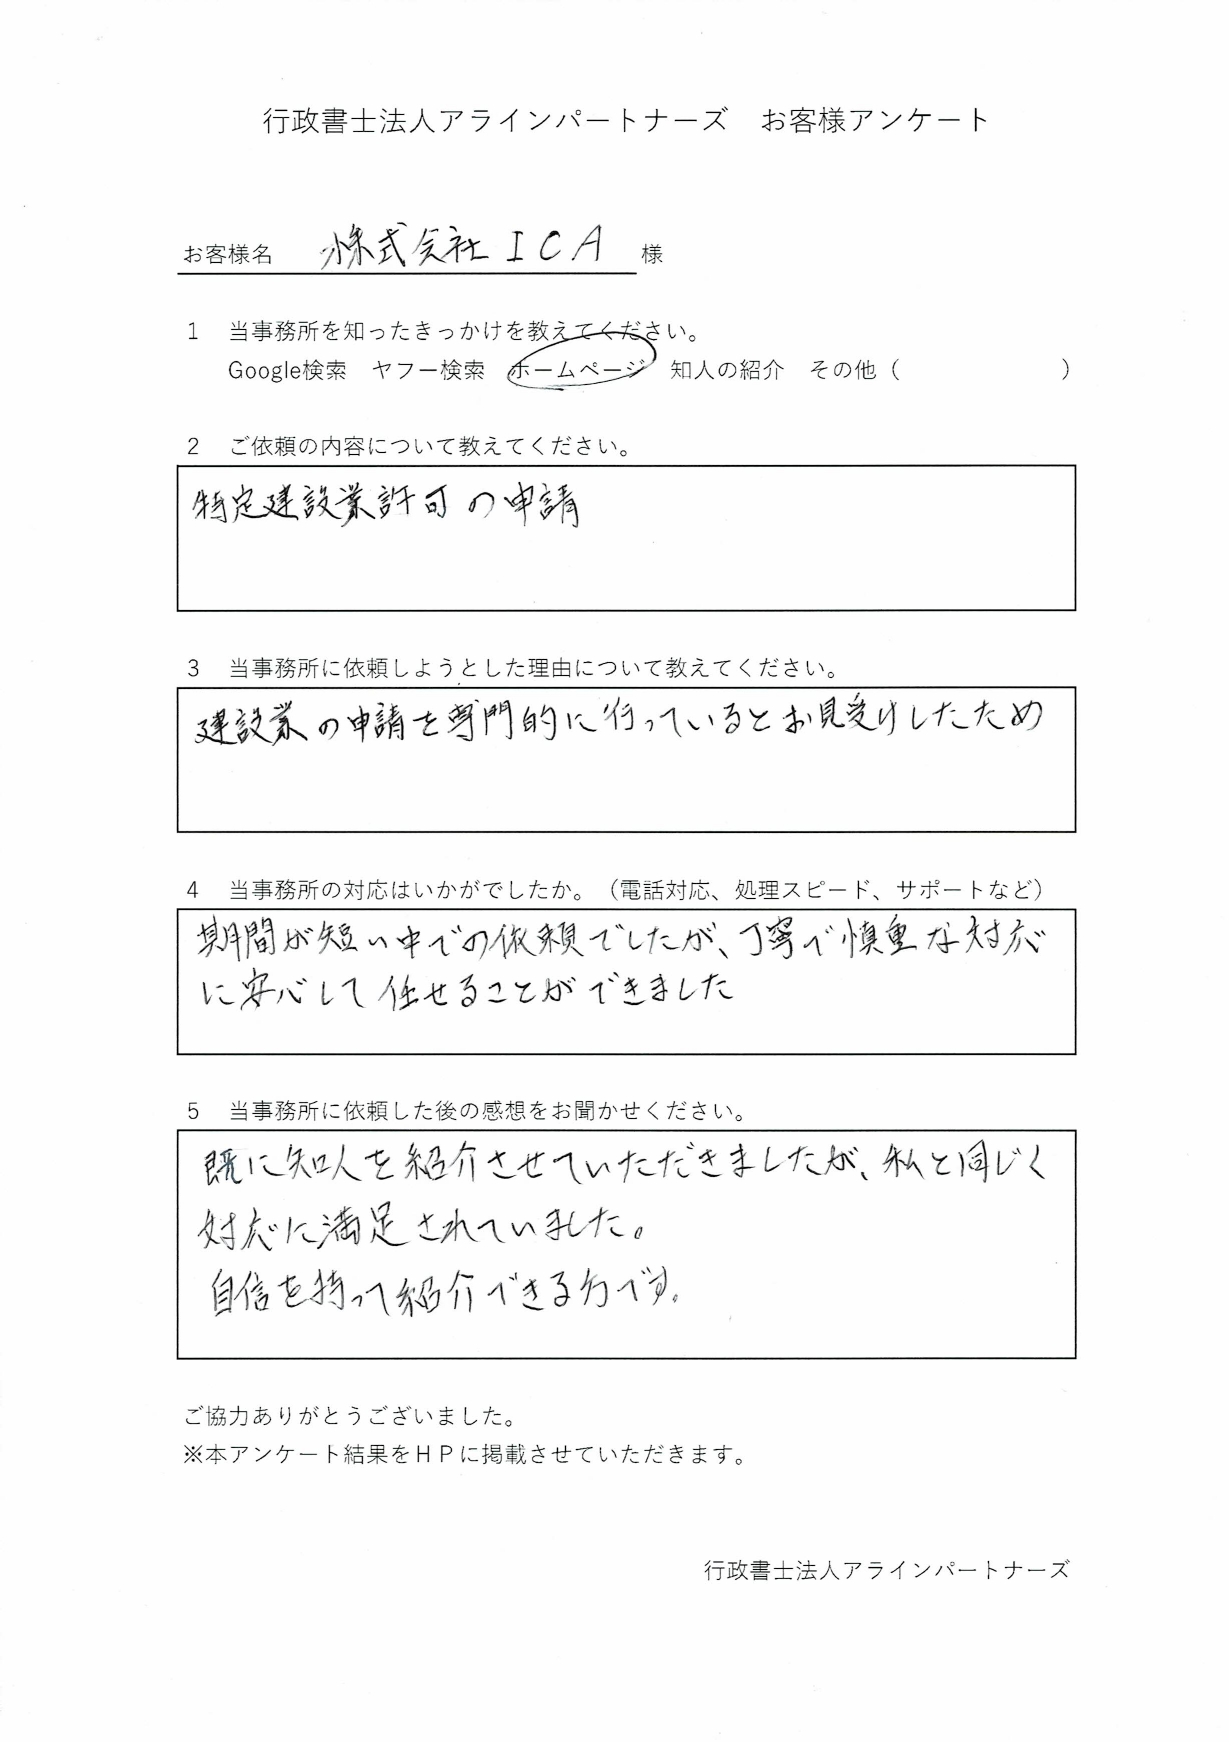 行政書士法人アラインパートナーズ　お客様アンケート
お客様名　株式会社ICA　様
1　当事務所を知ったきっかけを教えてください。
Google検索　ヤフー検索　ホームページ　知人の紹介　その他（　　　　　　　）
2　ご依頼の内容について教えてください。
特定建設業許可の申請
3　当事務所に依頼しようとした理由について教えてください。
建設業の申請を専門的に行っているとお見受けしたため
4　当事務所の対応はいかがでしたか。（電話対応、処理スピード、サポートなど）
期間が短い中での依頼でしたが、丁寧で慎重な対応
に安心して任せることができました
5　当事務所に依頼した後の感想をお聞かせください。
既に知人を紹介させていただきましたが、私と同じく
対応に満足されていました。
自信を持って紹介できる方です。
ご協力ありがとうございました。
※本アンケート結果をＨＰに掲載させていただきます。
行政書士法人アラインパートナーズ